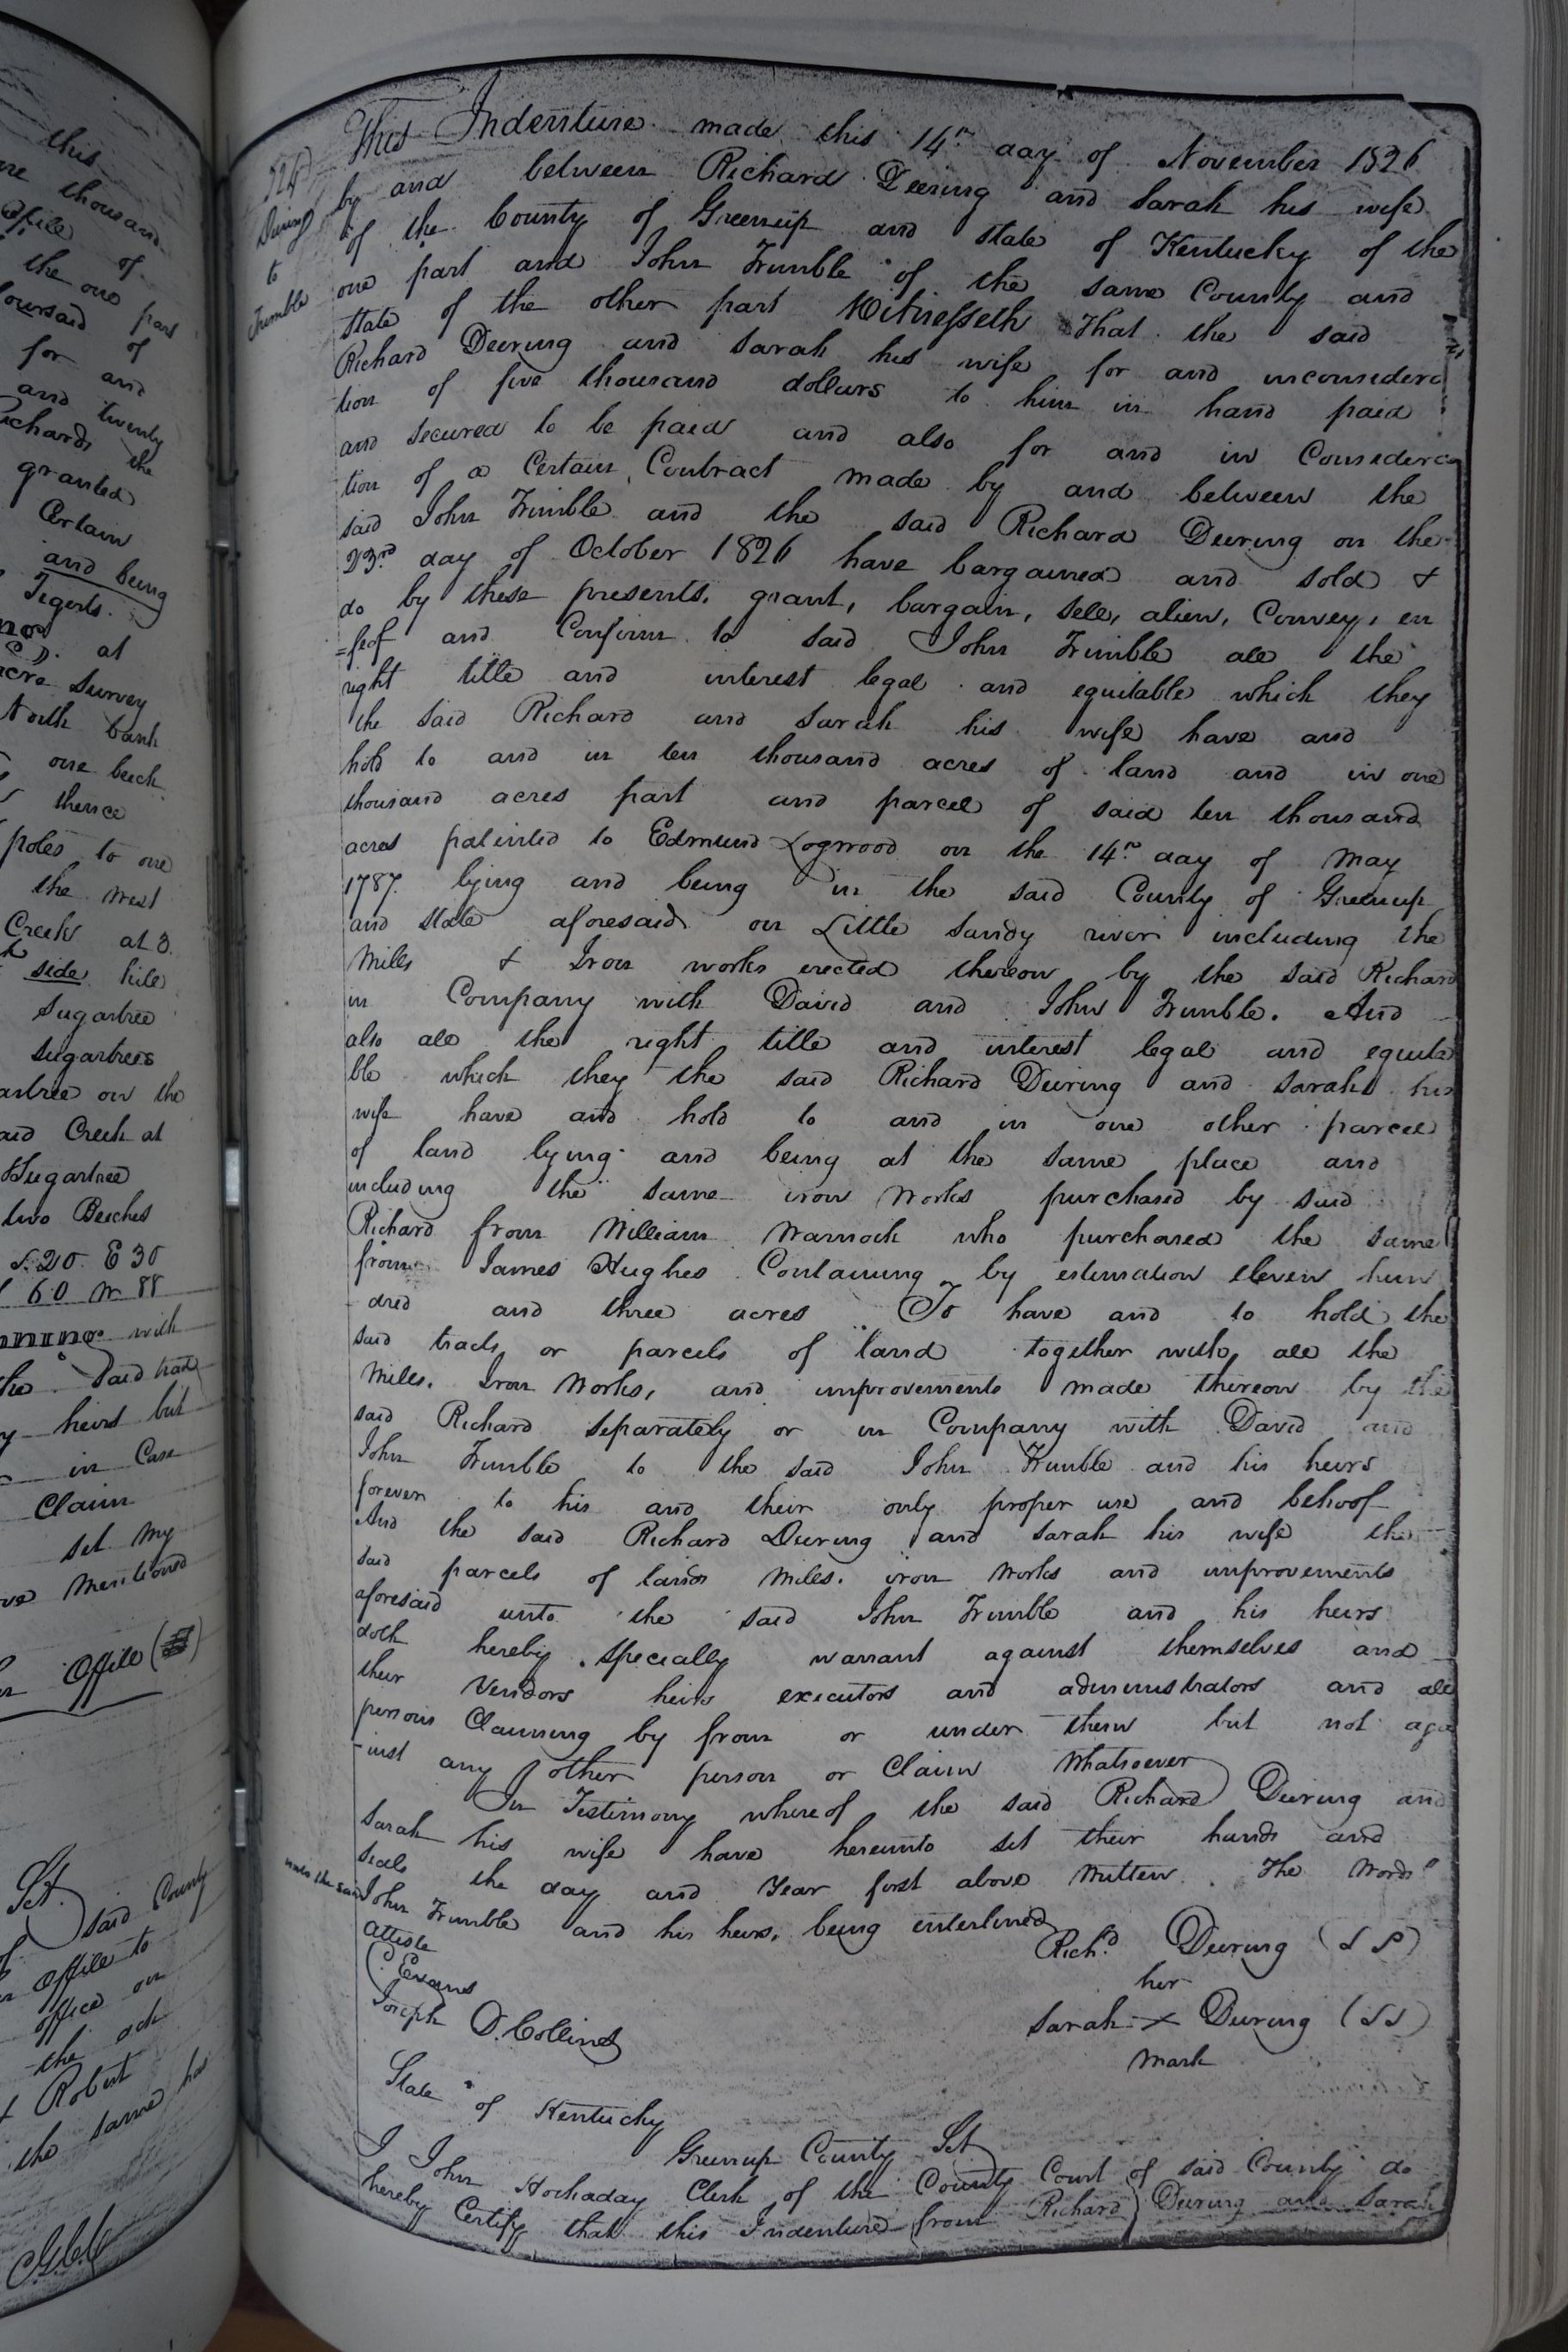 this
thousand
Office of
the one part
of
for and
and twenty
Richards the
granted
Certain
and being
Tigerts.
at
acre Survey
North bank
one beech
thence
poles to one
the West
Creek at 3.
side hill
Sugartree
Sugartrees
on the
said Creek at
Sugartree
two Beeches
S. 20. E 30
60 W 88
with
the said tract
heirs but
in Case
Claim
set my
mentioned
Office
Sct.
said County
office to
office on
the ack
Robert
the same has
Deering
to
Trimble
This Indenture made this 14th day of November 1826
by and between Richard Deering and Sarah his wife
of the County of Greenup and state of Kentucky of the
one part and John Trimble of the same County and
state of the other part Witnesseth That the said
Richard Deering and Sarah his wife for and inconsidera
tion of five thousand dollars to him in hand paid
and secured to be paid and also for and in Considera
tion of a Certain Contract made by and between the
said John Trimble and the said Richard Deering on the
23rd day of October 1826 have bargained and sold &
do by these presents, grant, bargain, sell, alien, Convey, en
=feof and Confirm to said John Trimble all the
right title and interest legal and equitable which they
the said Richard and Sarah his wife have and
hold to and in ten thousand acres of land and in one
thousand acres part and parcel of said ten thousand
acres patented to Edmund Logwood on the 14th day of May
1787. lying and being in the said County of Greenup
and state aforesaid on Little Sandy river including the
Mills & Iron works erected thereon by the said Richard
in Company with David and John Trimble. And
also all the right title and interest legal and equita
ble which they the said Richard Deering and Sarah his
wife have and hold to and in one other parcel
of land lying and being at the same place and
including the same iron Works purchased by said
Richard from William Warnock who purchased the same
from James Hughes Containing by estimation eleven hun
-dred and three acres To have and to hold the
said tracts or parcels of land together with all the
Mills. Iron Works, and improvements made thereon by the
said Richard separately or in Company with David and
John Trimble to the said John Trimble and his heirs
forever to his and their only proper use and behoof
And the said Richard Deering and Sarah his wife the
said parcels of land Mills. iron Works and improvements
aforesaid unto the said John Trimble and his heirs
doth hereby specially warrant against themselves and
their Vendors heirs executors and administrators and all
persons Claiming by from or under them but not aga
-inst any other person or Claim Whatsoever
In Testimony whereof the said Richard Deering and
Sarah his wife have hereunto set their hands and
seals the day and Year first above Written. The Words"
unto the said John Trimble and his heirs, being interlined
Atteste
C. Evans
Joseph D. Collins
Richd. Deering (LS)
her
Sarah X Deering (LS)
mark
State of Kentucky
Greenup County Sct
I John Hockaday Clerk of the County Court of said County do
hereby Certify that this Indenture from Richard Deering and Sarah